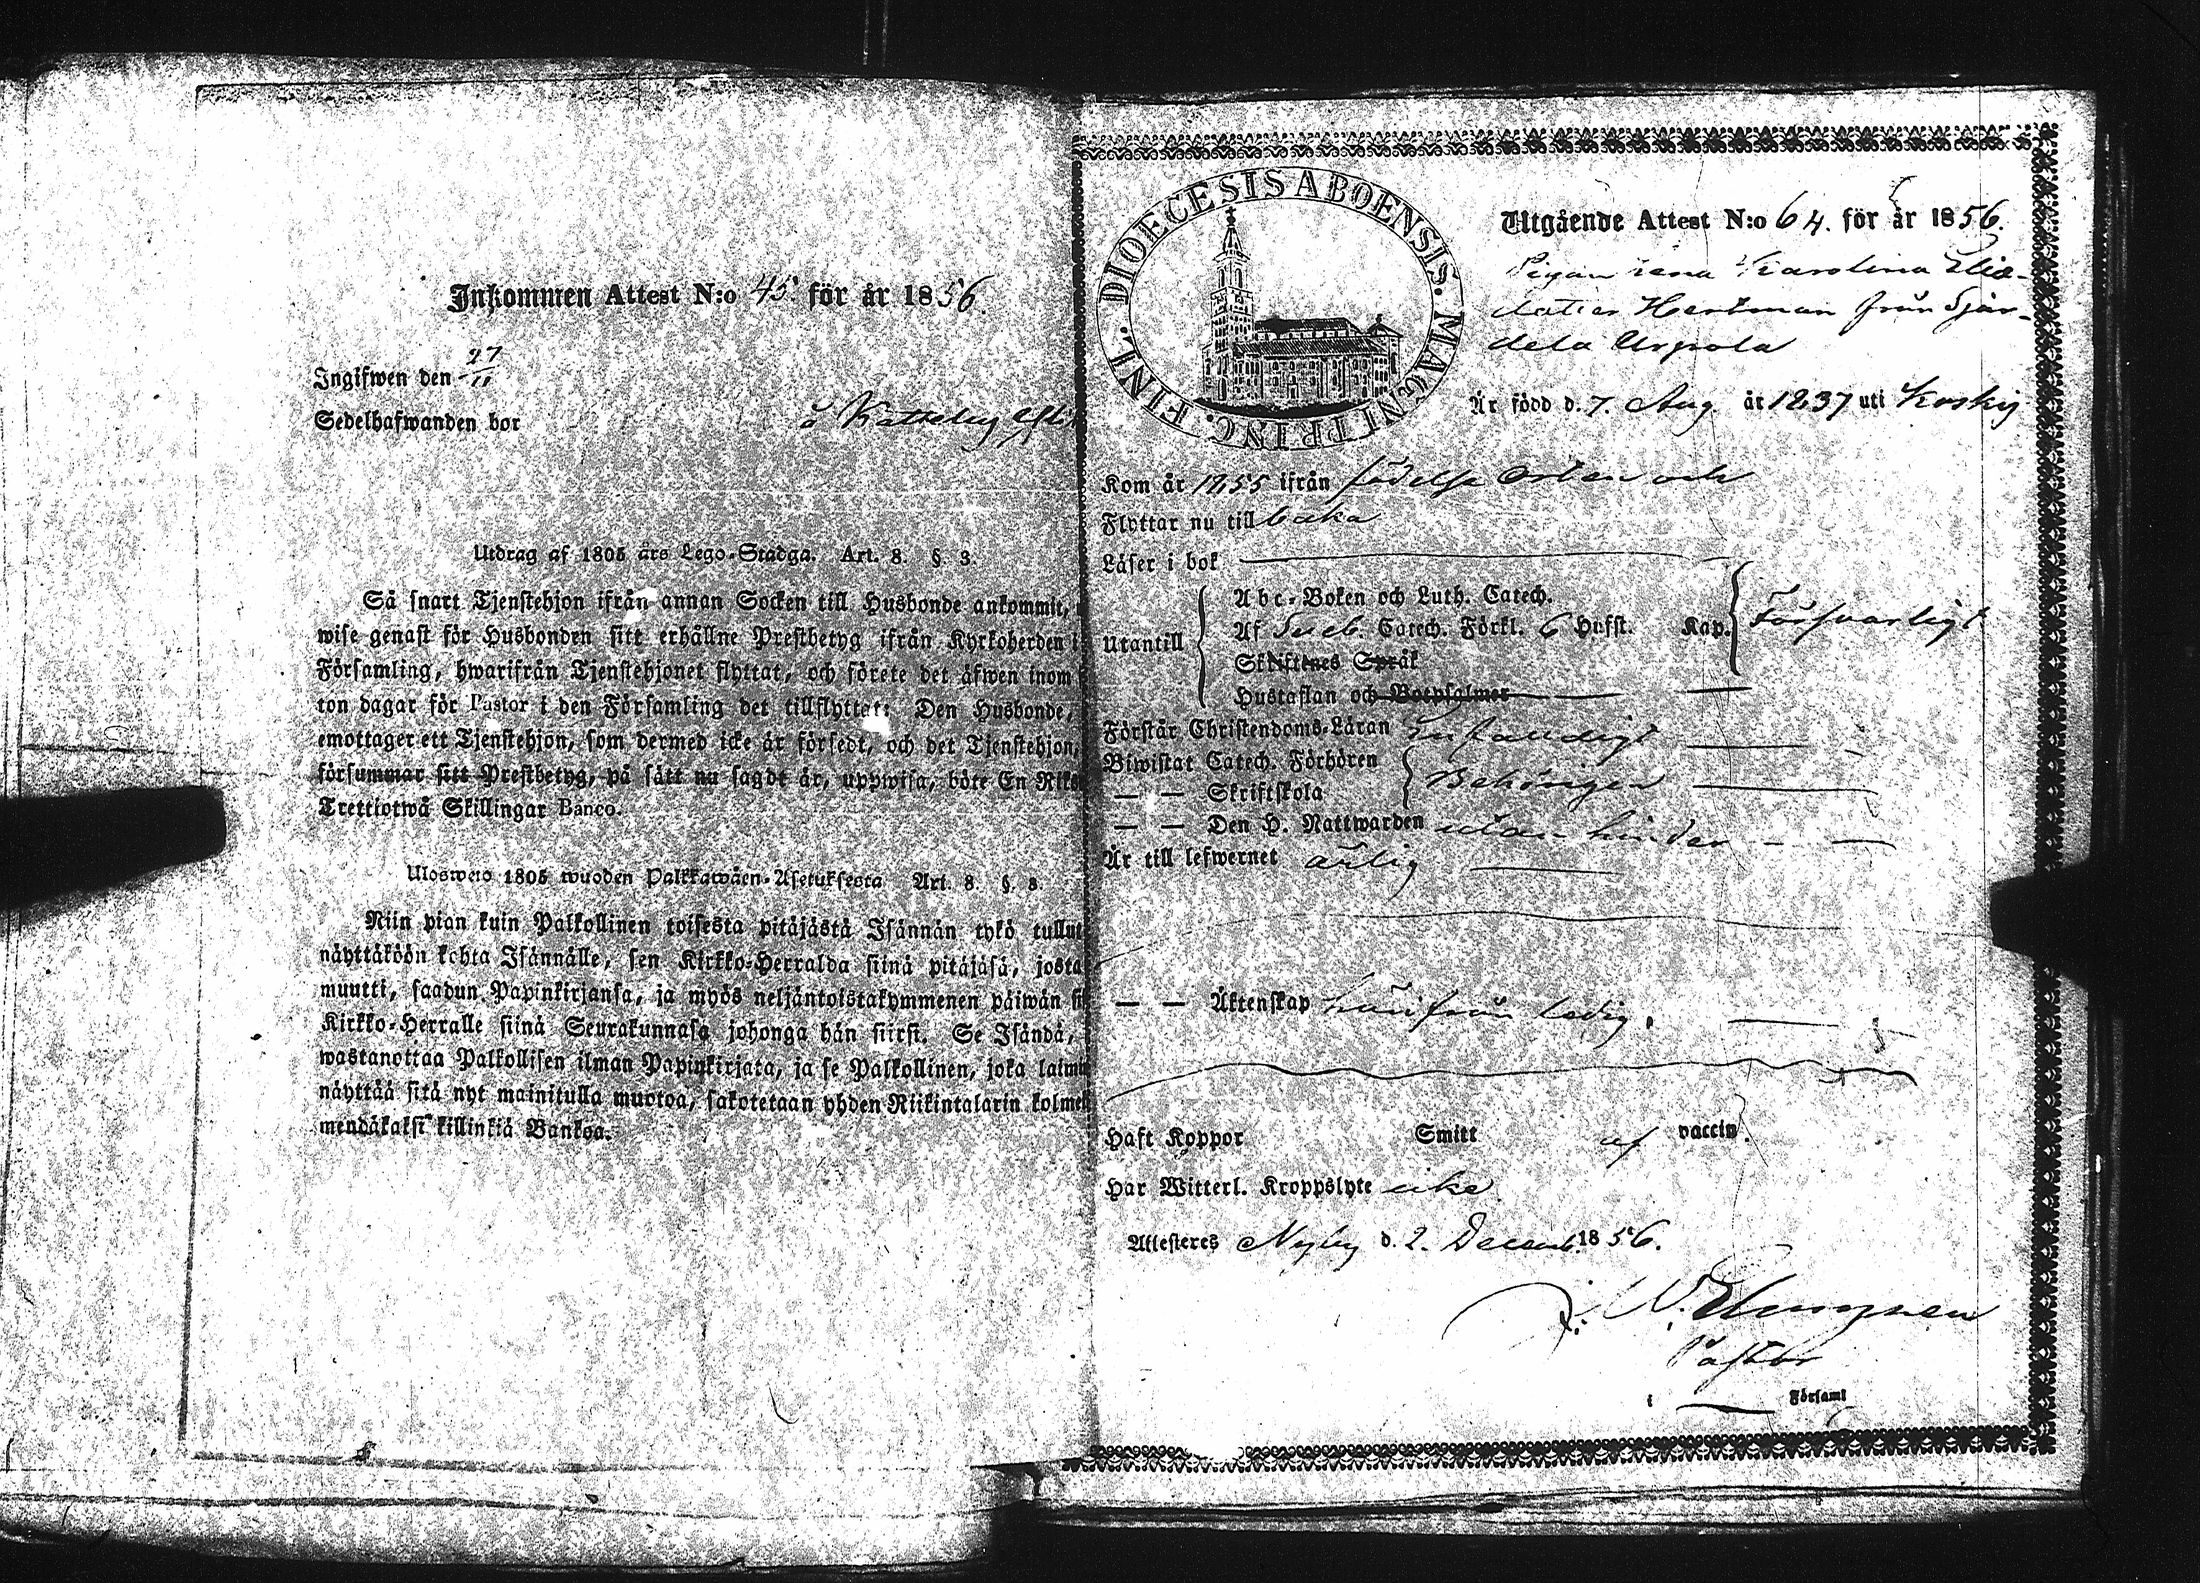 Inkommen Attest N:o 45. för år 1856.
Ingifwen den 27/11
Sedelhafwanden bor å Katteby
Utdrag af 1805 års Lego-Stadga. Art. 8. §. 3.
Så snart Tjenstehjon ifrån annan Socken till Husbonde ankommit,
wise genast för Husbonden sitt erhållne Prestbetyg ifrån Kyrkoherden i
Församling, hwarifrån Tjenstehjonet flyttat, och förete det äfwen inom
ton dagar för Pastor i den Församling det tillflyttat: Den Husbonde,
emottager ett Tjenstehjon, som dermed icke är försedt, och det Tjenstehjon,
försummar sitt Prestbetyg, på sätt nu sagdt är, uppwisa, böte En Riks
Trettiotwå Skillingar Banco.
Ulosweto 1805 wuoden Palkkawäen-Asetuksesta Art. 8. §. 3.
Niin pian kuin Palkollinen toisesta pitäjästä Isännän tykö tullut
näyttäköön kohta Isännälle, sen Kirkko-Herralda siinä pitäjäsä, josta
muutti, saadun Papinkirjansa, ja myös neljäntoistakymmenen päiwän si
Kirkko-Herralle siinä Seurakunnasa johonga hän siirsi. Se Isändä,
wastanottaa Palkollisen ilman Papinkirjata, ja se Palkollinen, joka laimi
näyttää sitä nyt mainitulla muotoa, sakotetaan yhden Riikintalarin kolme
mendäkaksi killinkiä Bankoa.
FINL. DIOECESIS ABOENSIS. MAGNI PRINC.
Utgående Attest N:o 64. för år 1856.
Pigan Lena Karolina Elias
dotter Hertman från Sjär-
dela Urpola
Är född d. 7. Aug. år 1837 uti Kosky
Kom år 1855 ifrån födelse orten och
Flyttar nu till baka
Läser i bok
Utantill
Abc-Boken och Luth. Catech.
Af Sueb. Catech. Förkl. 6 Hufst. Kap. Försvarligt
Skriftenes Språk
Hustaflan och Botpsalmer
Förstår Christendoms-Läran
Biwistat Catech. Förhören Behörigen
— — Skriftskola
— — Den H. Nattwarden utan hinder
Är till lefwernet ärlig
— — Äktenskap härifrån ledig.
Haft Koppor Smitt af vaccin.
Har Witterl. Kroppslyte icke
Attesteres Nyby d. 2. Decemb. 1856.
Pastor
i Församl